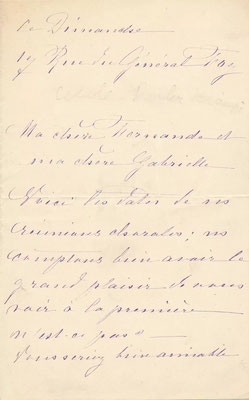 ce Dimanche
17 Rue du Général Foy
Cécile
Ma chère Fernande et
ma chère Gabrielle
Voici les dates de ns
réunions chorales; ns
comptons bien avoir le
grand plaisir de vous
voir à la première
n'est-ce pas?
Vous serez bien aimable